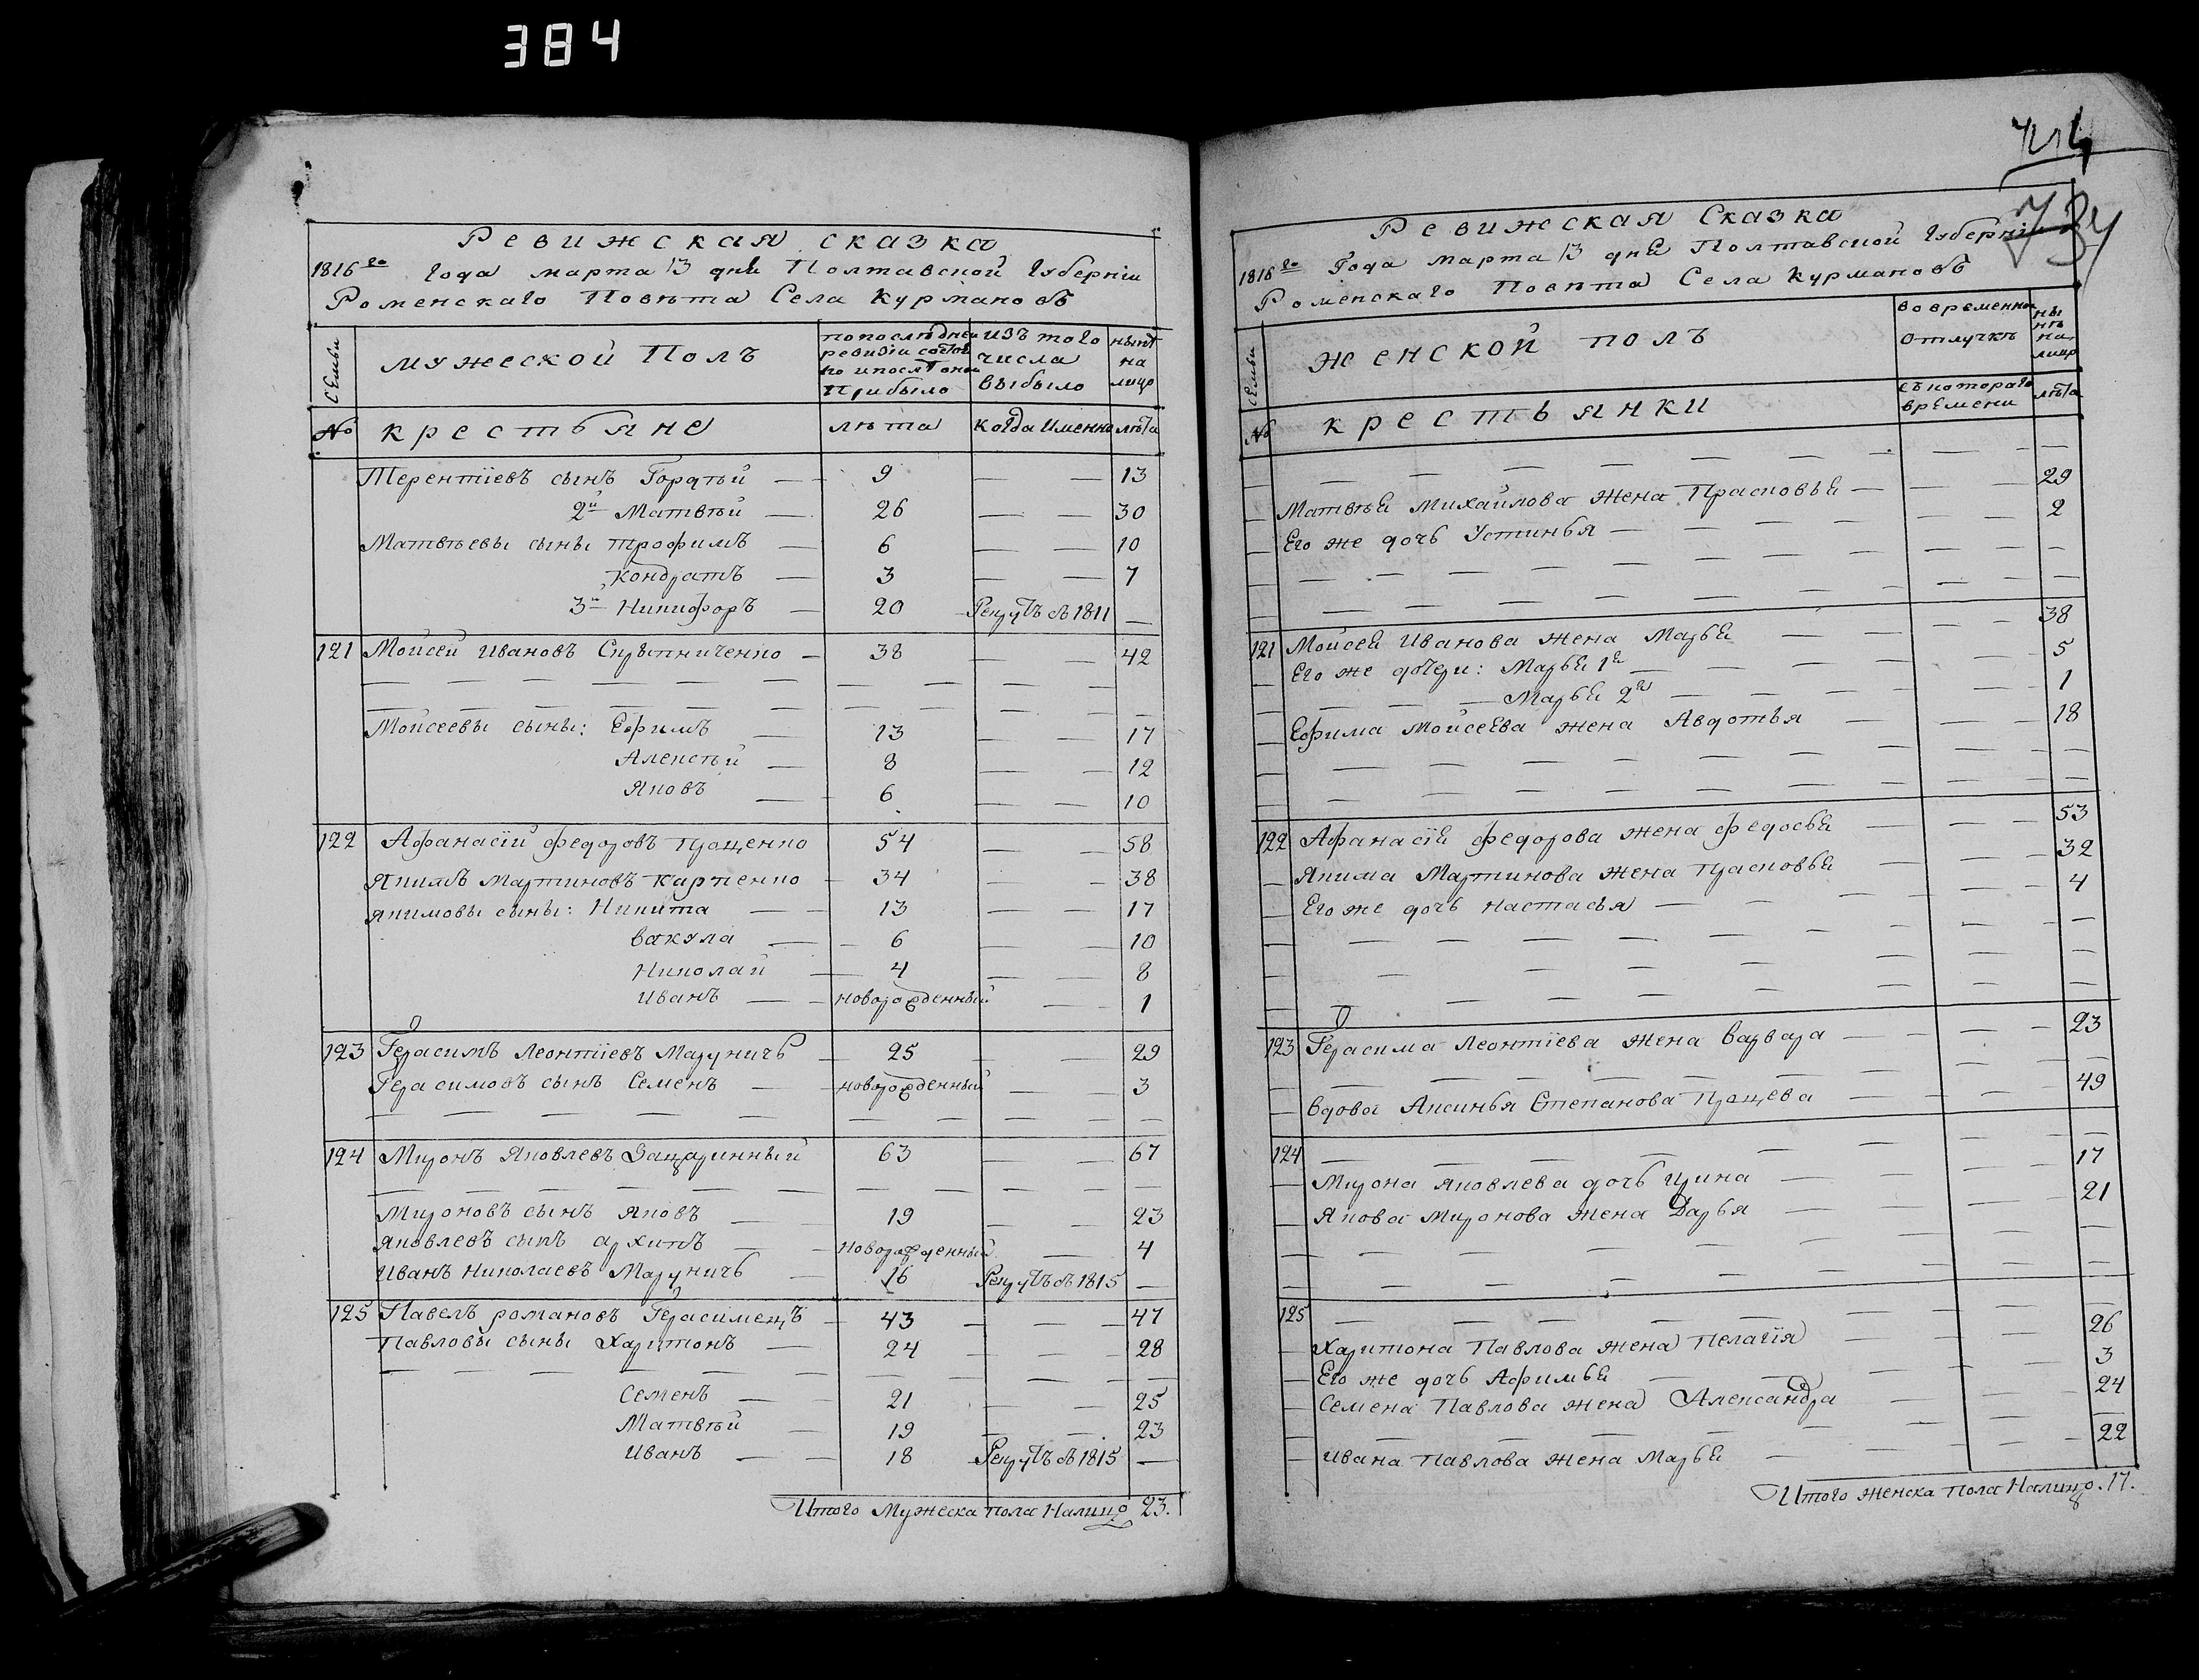 384
Ревижская сказка
1816го Года марта 13 дня Полтавской Губерніи
Роменскаго Повѣта Села Курмановъ
Семьи
мужеской Полъ
по последней ревизіи состояло и после оной прибыло
изъ того числа выбыло
нынѣ на лицо
№ крестьяне лѣта когда именно лѣта
Терентіевъ сынъ Гордѣй — 9 — — 13
2й Матвѣй — 26 — — 30
Матвѣевы сыны Трофимъ — 6 — — 10
Кондратъ — 3 — — 7
3й Никифоръ — 20 Рекрутъ въ 1811 —
121 Мойсей Ивановъ Скрыпниченко — 38 — — 42
Мойсеевы сыны: Ефимъ — 13 — — 17
Алексѣй — 8 — — 12
Яковъ — 6 — — 10
122 Афанасій Федоровъ Проценко 54 — — 58
Якимъ Мартиновъ Карпенко — 34 — — 38
Якимовы сыны: Никита — 13 — — 17
Вакула — 6 — — 10
Николай — 4 — — 8
Иванъ — новорожденный — 1
123 Герасимъ Леонтіевъ Маруничъ — 25 — — 29
Герасимовъ сынъ Семенъ — новорожденный — 3
124 Миронъ Яковлевъ 63 — — 67
Мироновъ сынъ Яковъ — 19 — — 23
Яковлевъ сынъ Архипъ — новорожденный — 4
Иванъ Николаевъ Маруничъ — 16 Рекрутъ въ 1815 —
125 Павелъ Романовъ Герасимецъ — 43 — — 47
Павловы сыны Харитонъ — 24 — — 28
Семенъ — 21 — — 25
Матвѣй — 19 — — 23
Иванъ — 18 Рекрутъ въ 1815 —
Итого Мужеска пола Налицо 23.
734
Ревижская Сказка
1816го Года марта 13 дня Полтавской Губерніи
Роменскаго Повѣта Села Курмановъ
Семьи
женской полъ
во временной отлучкѣ
нынѣ на лицо
№ крестьянки
съ котораго времени
лѣта
Матвѣя Михайлова жена Прасковья — 29
Его же дочь Устинья — 2
121 Мойсея Иванова жена Марья — 38
Его же дочери: Марья 1я — 5
Марья 2я — 1
Ефима Мойсеева жена Авдотья — 18
122 Афанасія Федорова жена Федосья — 53
Якима Мартинова жена Прасковья — 32
Его же дочь Настасья — 4
123 Герасима Леонтіева жена Варвара — 23
Вдова Аксинья Степанова Процева — 49
124
Мирона Яковлева дочь Ирина — 17
Якова Миронова жена Дарья — 21
125
Харитона Павлова жена Пелагія — 26
Его же дочь Афимья — 3
Семена Павлова жена Александра — 24
Ивана Павлова жена Марья — 22
Итого женска пола Налицо. 17.